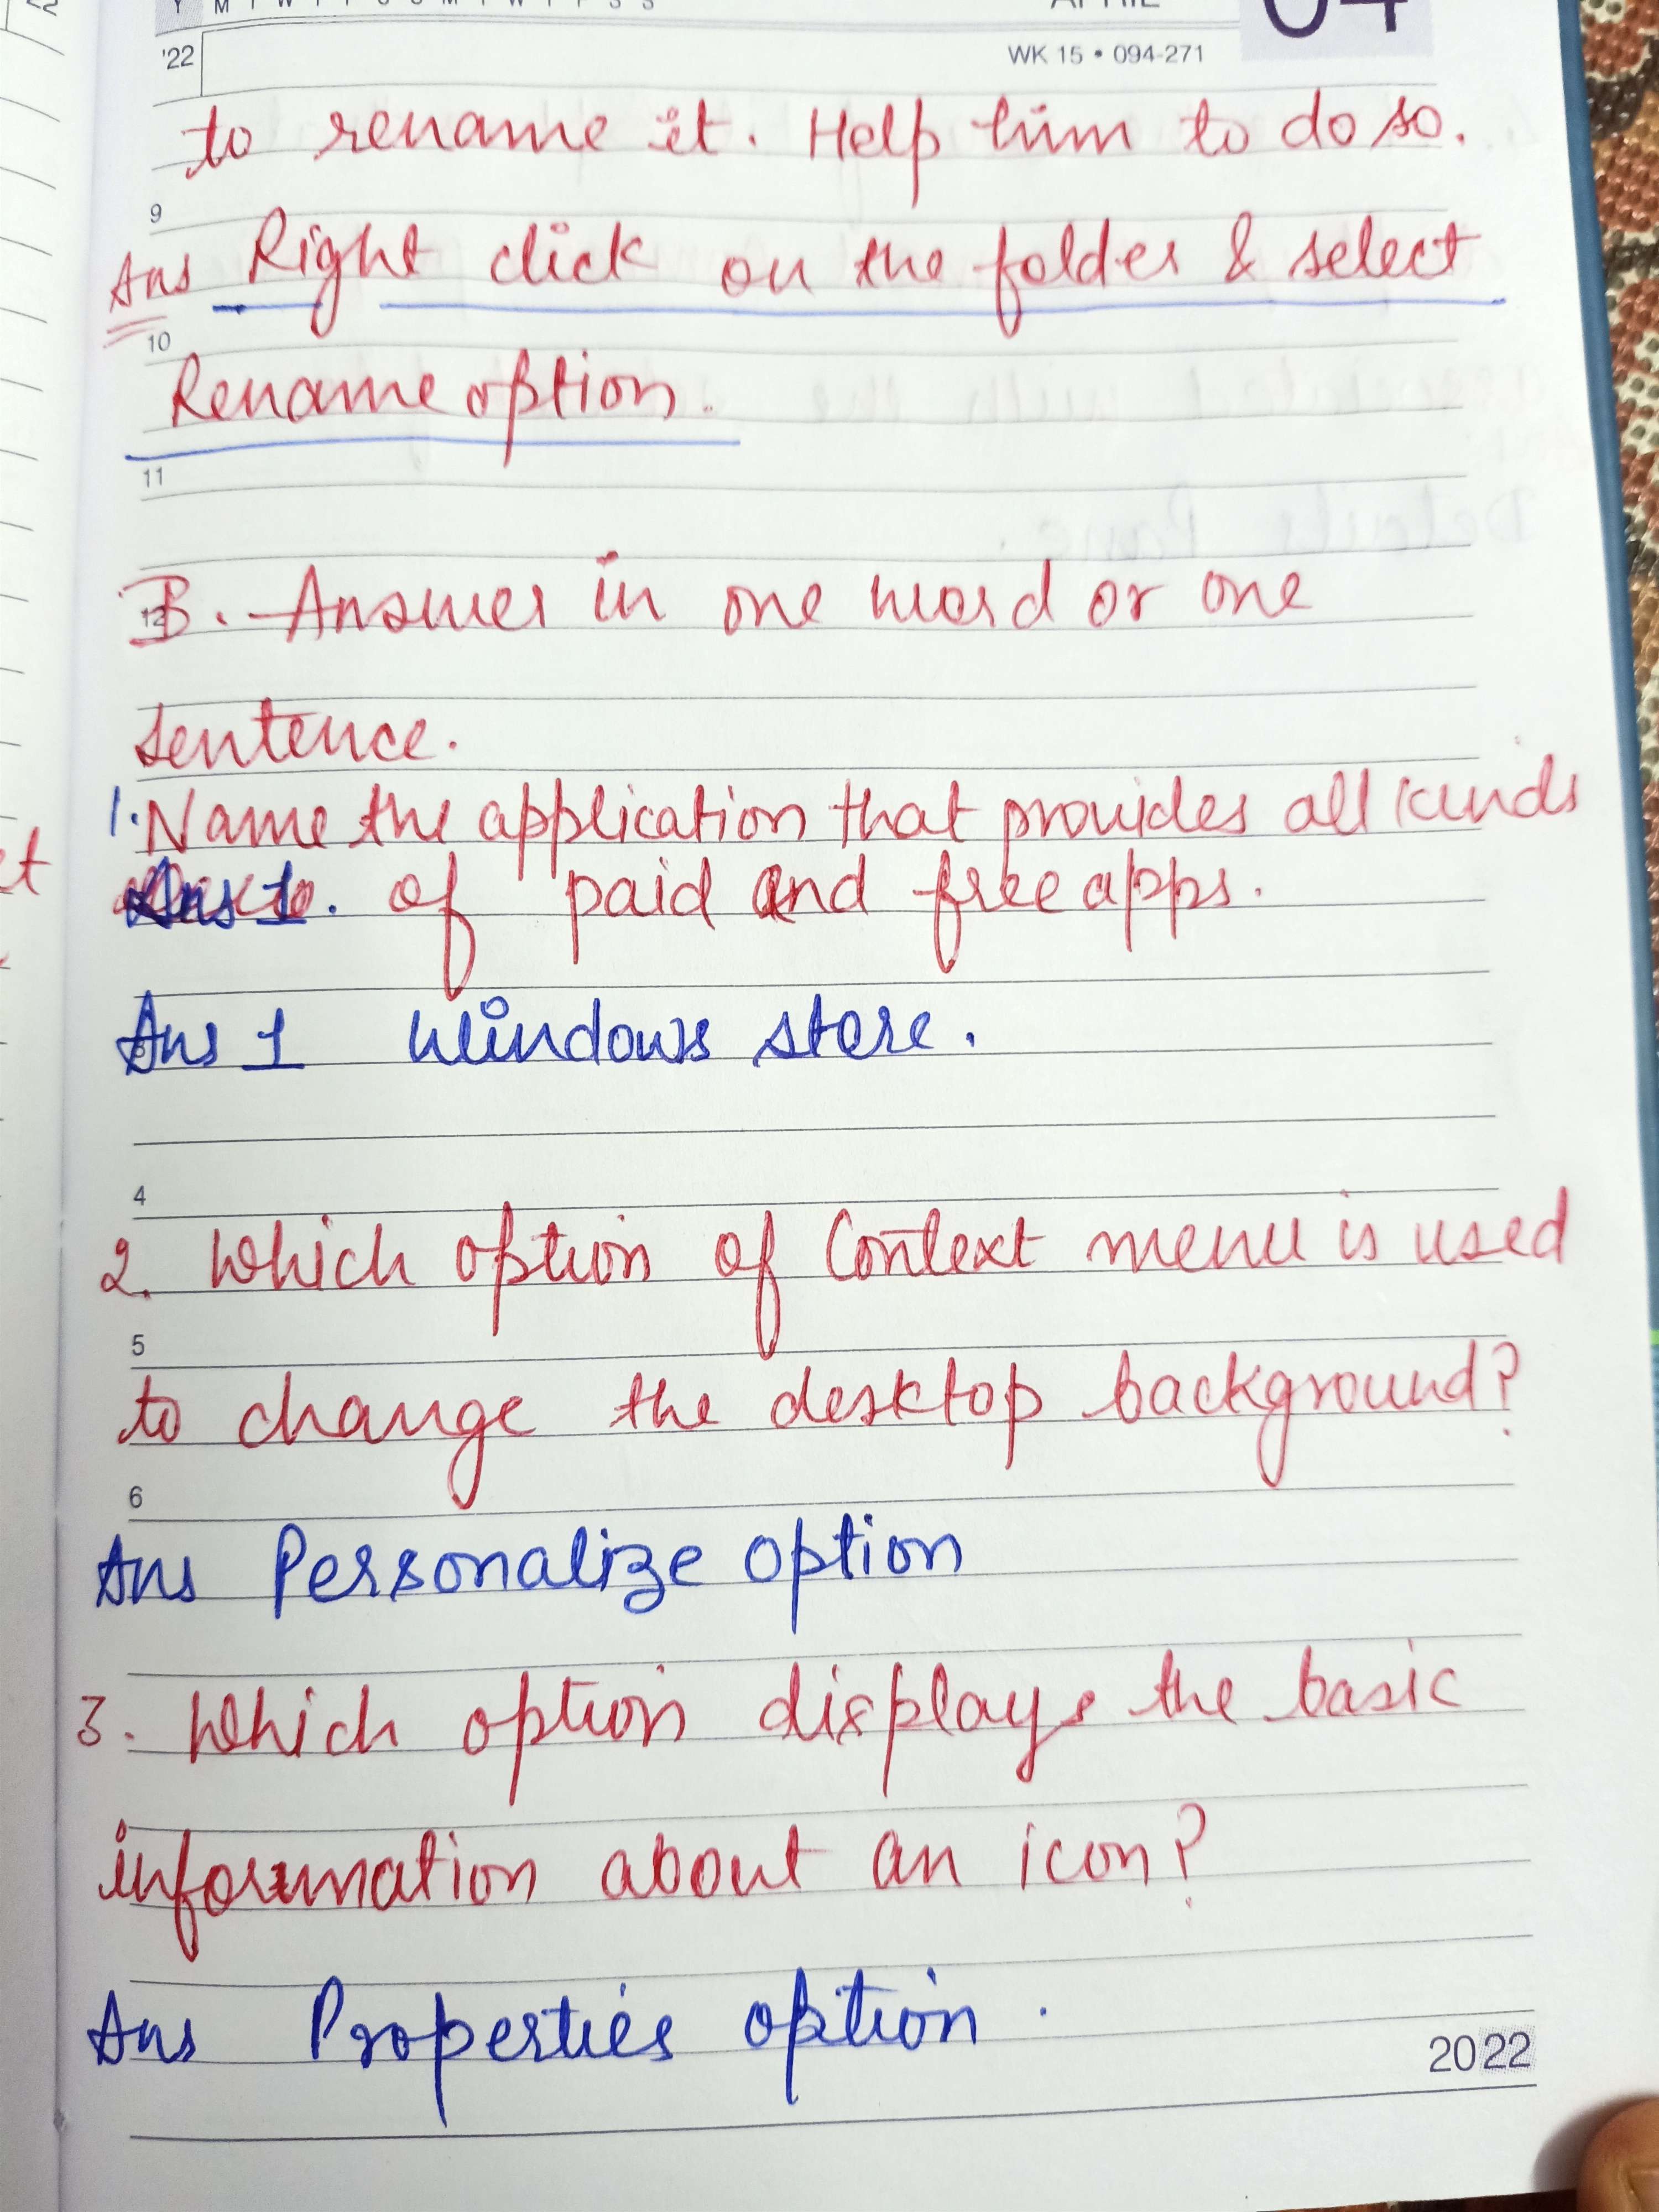 '22
WK 15 • 094-271
to rename it. Help him to do so.
9
Ans Right click on the folder & select
10
Rename option.
11
12
B. Answer in one word or one
sentence.
1. Name the application that provides all kinds
Ans 1. of paid and free apps.
Ans 1 Windows store.
4
2. Which option of Context menu is used
5
to change the desktop background?
6
Ans Personalize option
3. Which option displays the basic
information about an icon?
Ans Properties option.
2022